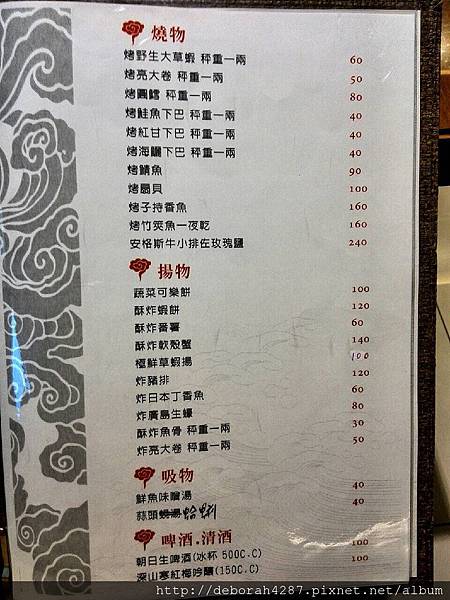 燒物
烤野生大草蝦 秤重一兩 60
烤亮大卷 秤重一兩 50
烤圓鱈 秤重一兩 80
烤鮭魚下巴 秤重一兩 40
烤紅甘下巴 秤重一兩 40
烤海鱺下巴 秤重一兩 40
烤鯖魚 90
烤扇貝 100
烤子持香魚 160
烤竹筴魚一夜乾 160
安格斯牛小排佐玫瑰鹽 240
揚物
蔬菜可樂餅 100
酥炸蝦餅 120
酥炸番薯 60
酥炸軟殼蟹 140
極鮮草蝦揚 100
炸豬排 120
炸日本丁香魚 60
炸廣島生蠔 80
酥炸魚骨 秤重一兩 30
炸亮大卷 秤重一兩 50
吸物
鮮魚味噌湯 40
蒜頭 湯 40
啤酒.清酒
朝日生啤酒(冰杯 500C.C) 100
深山寒紅梅吟釀(150C.C) 100
http://deborah4287.pixnet.net/album